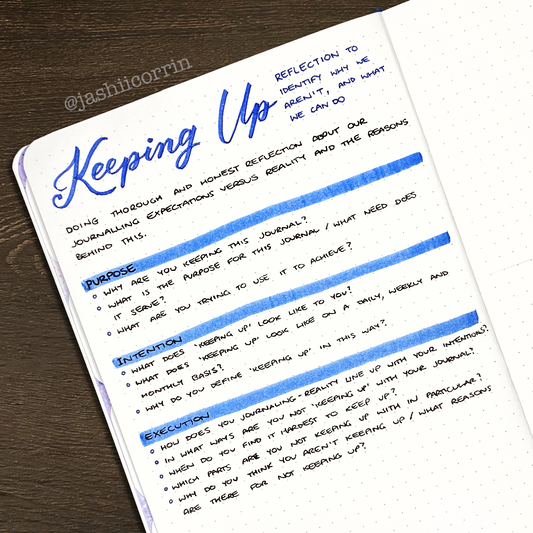 @jashiicorrin
Keeping Up
REFLECTION TO
IDENTIFY WHY WE
AREN'T, AND WHAT
WE CAN DO
DOING THOROUGH AND HONEST REFLECTION ABOUT OUR
JOURNALLING EXPECTATIONS VERSUS REALITY AND THE REASONS
BEHIND THIS.
PURPOSE
WHY ARE YOU KEEPING THIS JOURNAL?
WHAT IS THE PURPOSE FOR THIS JOURNAL / WHAT NEED DOES
IT SERVE?
WHAT ARE YOU TRYING TO USE IT TO ACHIEVE?
INTENTION
WHAT DOES 'KEEPING UP' LOOK LIKE TO YOU?
WHAT DOES 'KEEPING UP' LOOK LIKE ON A DAILY, WEEKLY AND
MONTHLY BASIS?
WHY DO YOU DEFINE 'KEEPING UP' IN THIS WAY?
EXECUTION
HOW DOES YOU JOURNALING-REALITY LINE UP WITH YOUR INTENTIONS?
IN WHAT WAYS ARE YOU NOT 'KEEPING UP' WITH YOUR JOURNAL?
WHEN DO YOU FIND IT HARDEST TO KEEP UP?
WHICH PARTS ARE YOU NOT KEEPING UP WITH IN PARTICULAR?
WHY DO YOU THINK YOU AREN'T KEEPING UP / WHAT REASONS
ARE THERE FOR NOT KEEPING UP?